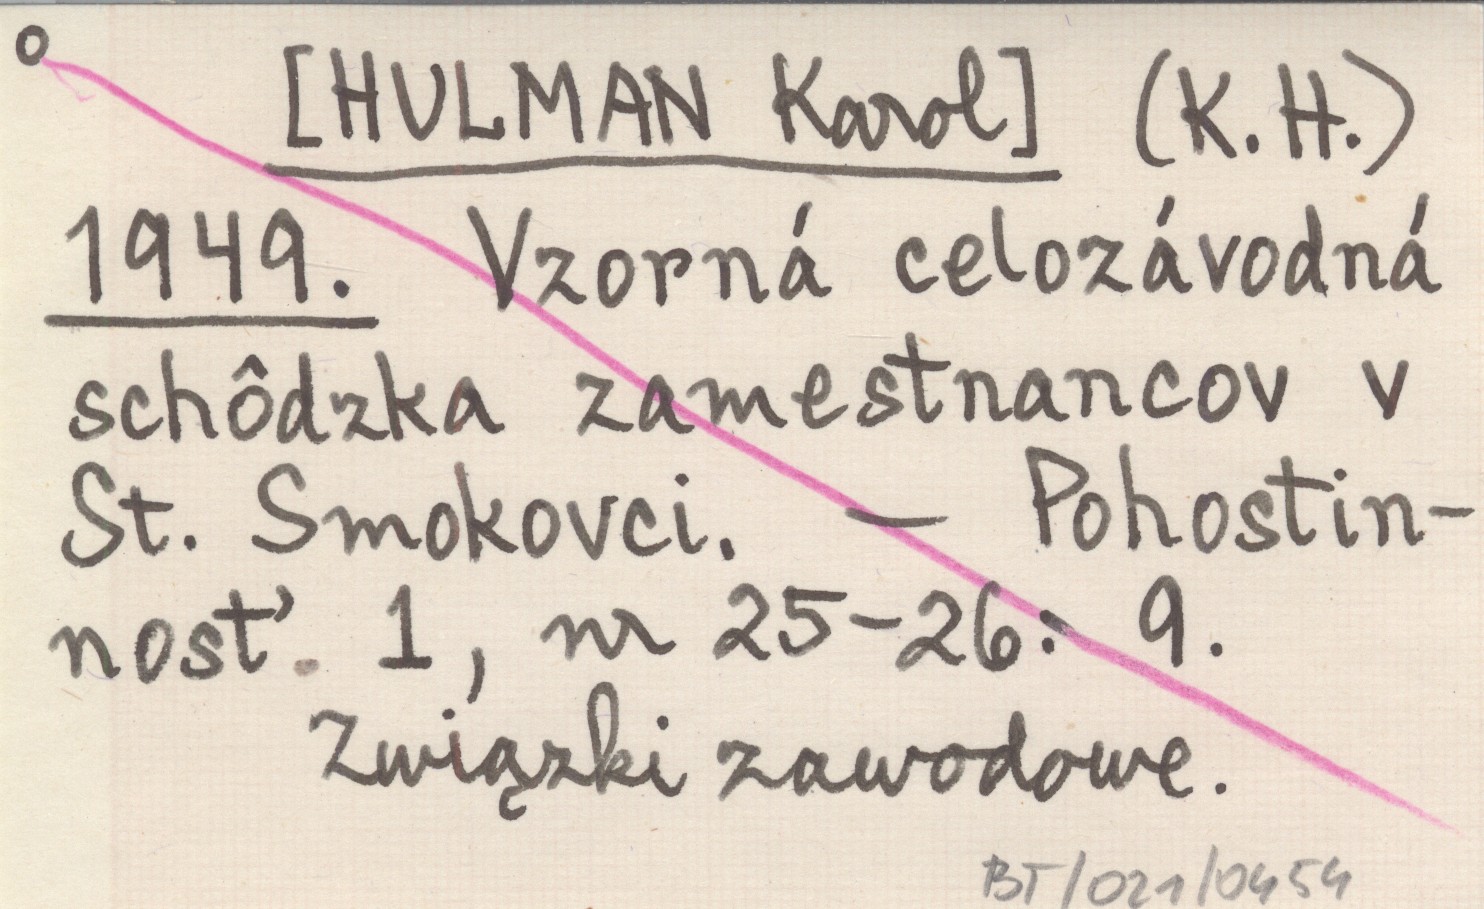 [HULMAN Karol] (K.H.)
1949. Vzorná celozávodná
schôdzka zamestnancov v
St. Smokovci. — Pohostin-
nosť. 1, nr 25-26: 9.
Związki zawodowe.
BT/021/0454